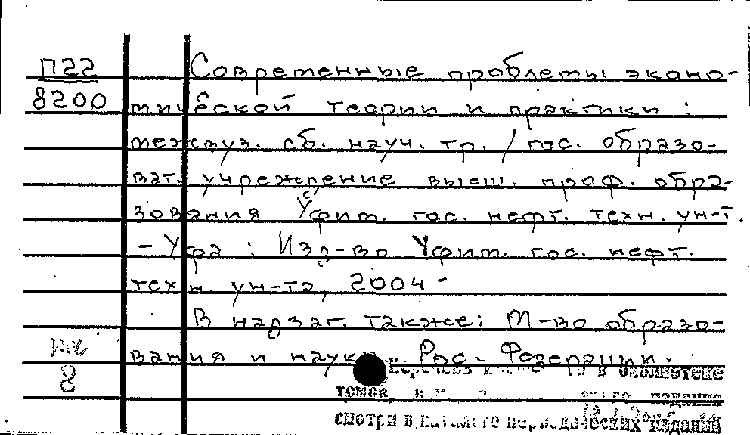 П22
8200
Современные проблемы эконо-
мической теории и практики :
межвуз. сб. науч. тр. / гос. образо-
ват. учреждение высш. проф. обра-
зования Уфим. гос. нефт. техн. ун-т.
- Уфа : Изд-во Уфим. гос. нефт.
техн. ун-та, 2004 -
В надзаг. также: М-во образо-
вания и науки Рос. Федерации.
8
в библиотеке
томов издание
смотри в каталоге периодических изданий